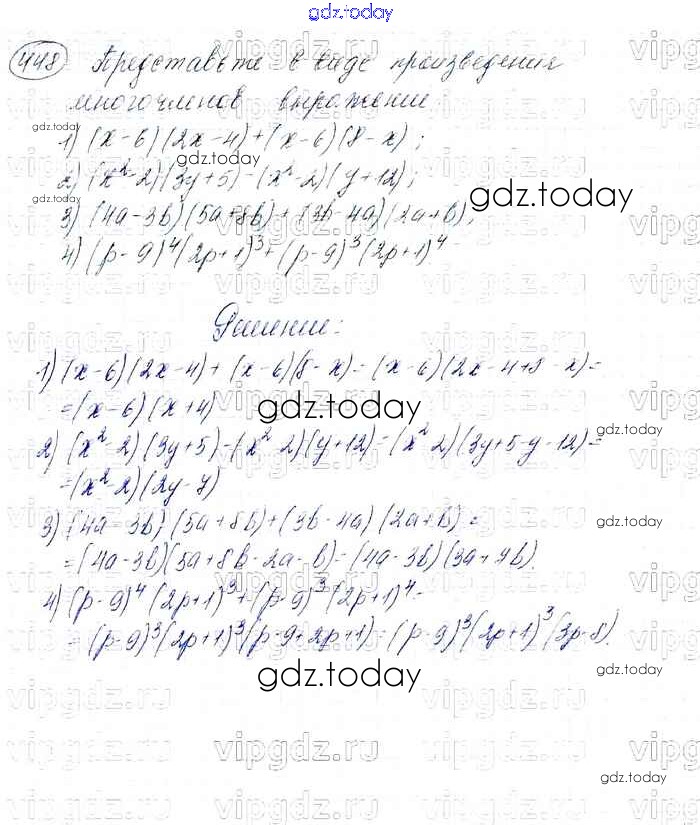 gdz.today
448 Представьте в виде произведения
многочленов выражение
1) (x-6)(2x-4)+(x-6)(8-x);
2) (x²-2)(3y+5)-(x²-2)(y+12);
3) (4a-3b)(5a+8b)+(3b-4a)(2a+b);
4) (p-9)⁴(2p+1)³+(p-9)³(2p+1)⁴
Решение:
1) (x-6)(2x-4)+(x-6)(8-x)=(x-6)(2x-4+8-x)=
=(x-6)(x+4)
2) (x²-2)(3y+5)-(x²-2)(y+12)=(x²-2)(3y+5-y-12)=
=(x²-2)(2y-7)
3) (4a-3b)(5a+8b)+(3b-4a)(2a+b)=
=(4a-3b)(5a+8b-2a-b)=(4a-3b)(3a+7b).
4) (p-9)⁴(2p+1)³+(p-9)³(2p+1)⁴=
=(p-9)³(2p+1)³(p-9+2p+1)=(p-9)³(2p+1)³(3p-8).
gdz.today
gdz.today
gdz.today
gdz.today
gdz.today
gdz.today
gdz.today
gdz.today
gdz.today
gdz.today
gdz.today
vipgdz.ru
vipgdz.ru
vipgdz.ru
vipgdz.ru
vipgdz.ru
vipgdz.ru
vipgdz.ru